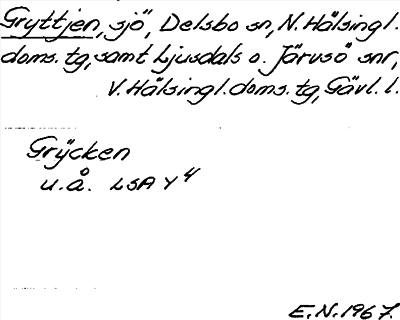 Gryttjen, sjö, Delsbo sn, N. Hälsingl.
doms. tg, samt Ljusdals o. Järvsö snr,
V. Hälsingl. doms. tg, Gävl. l.
Grÿcken
u. å. LSA Y 4
E. N. 1967.